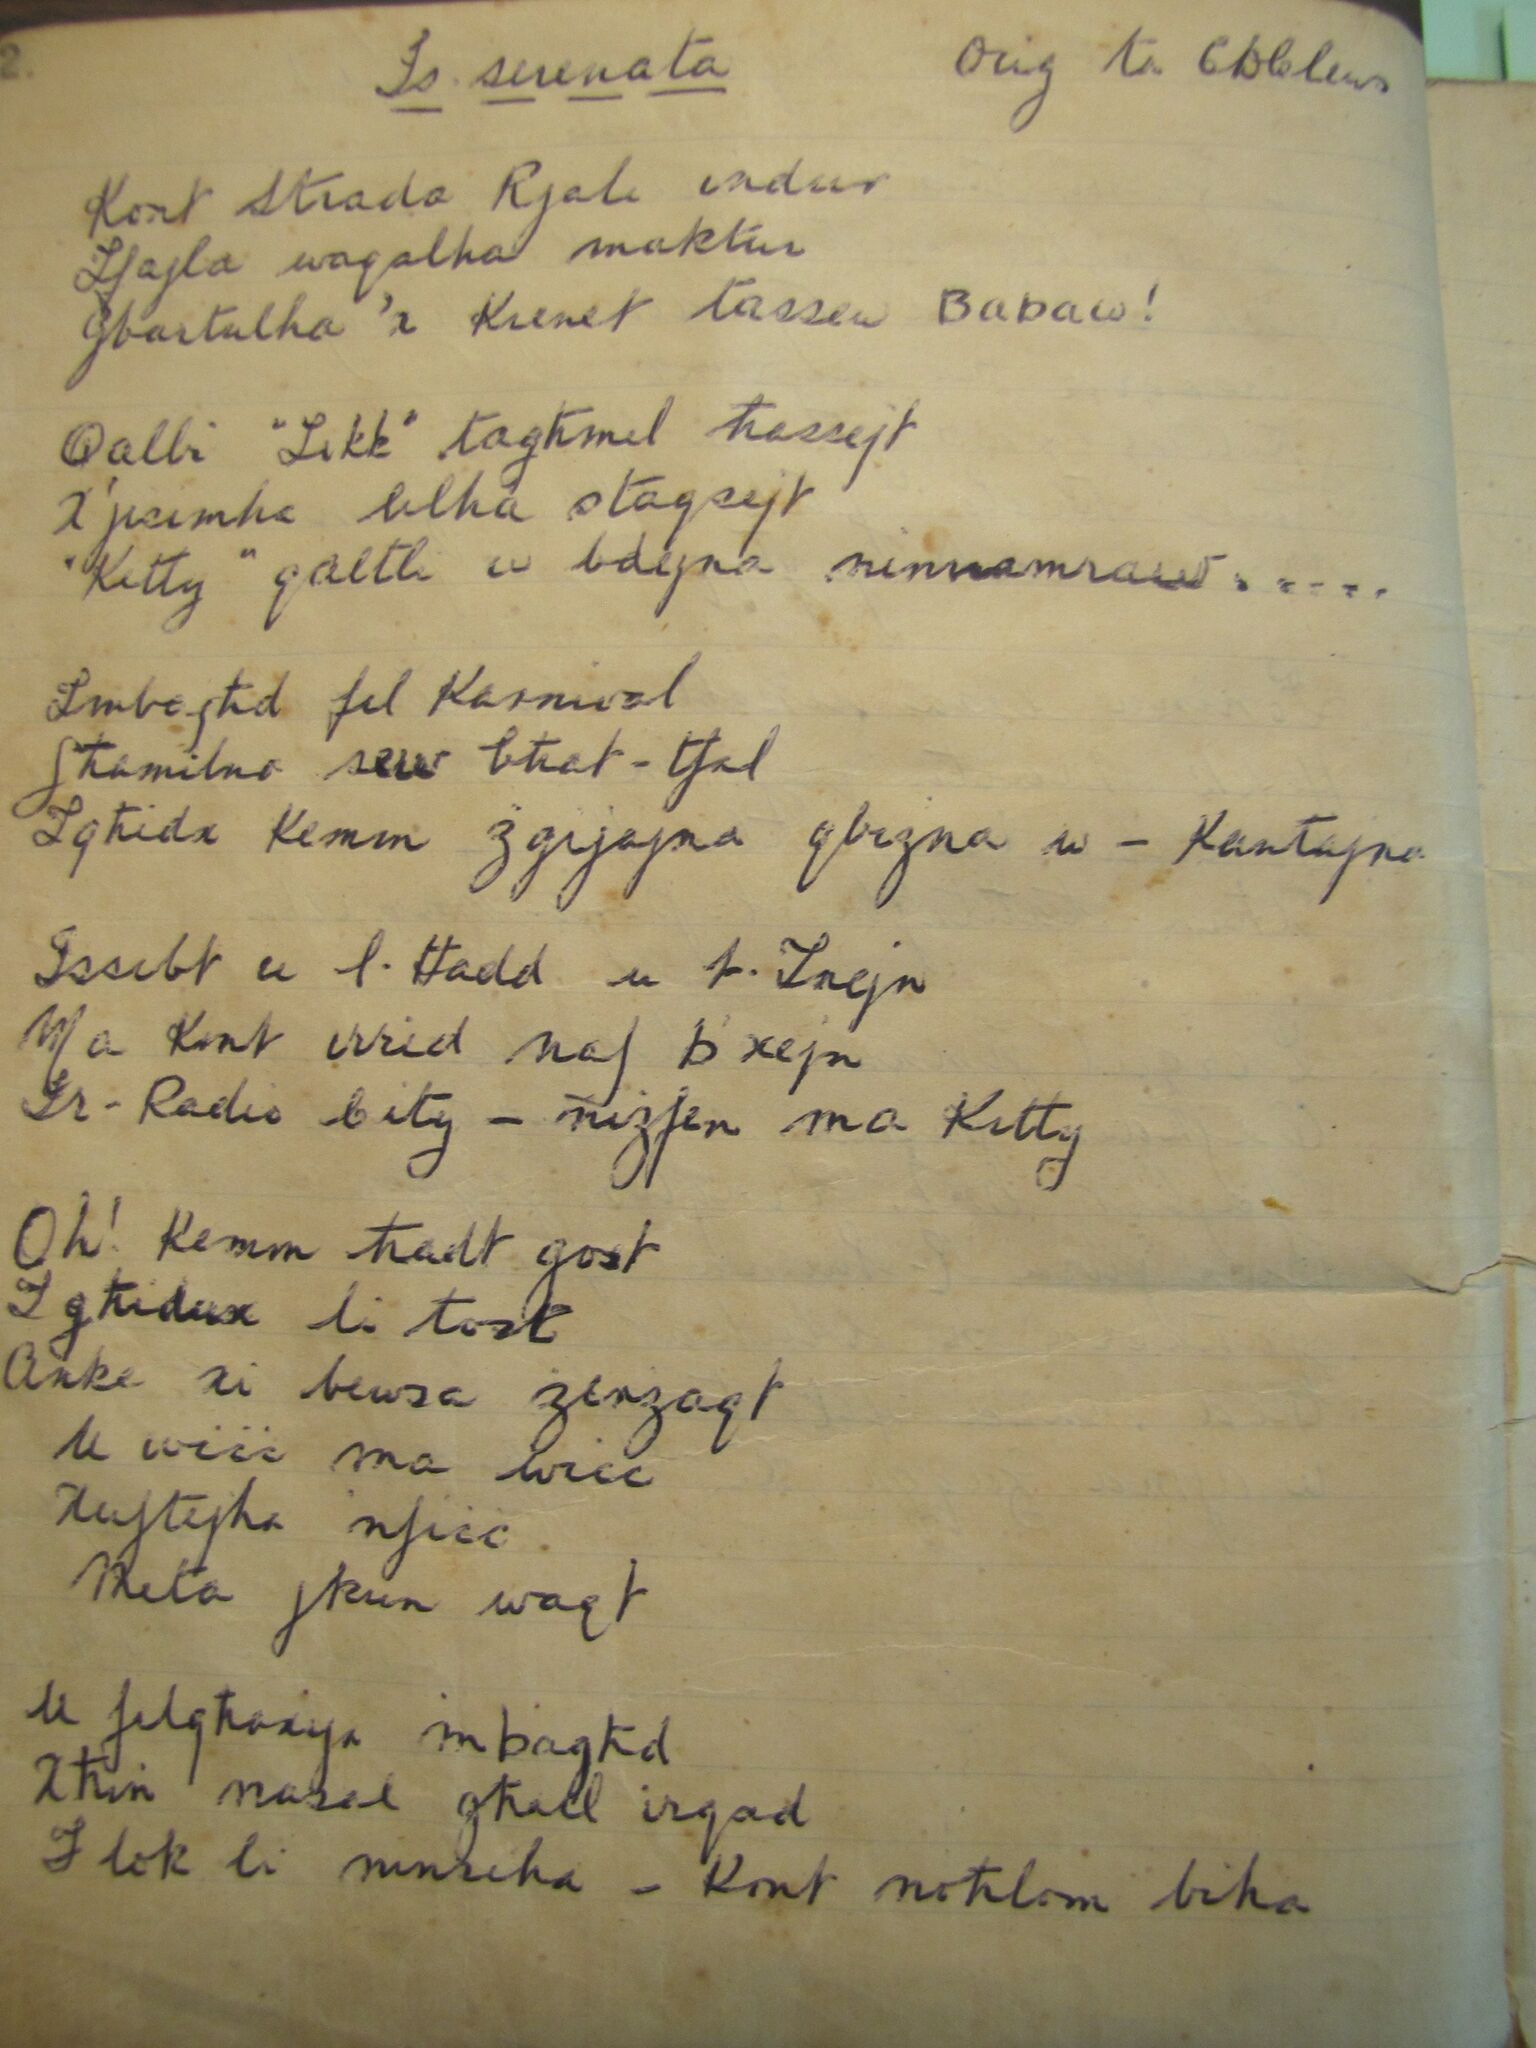 2.
Is. serenata
Orig ta
Kont Strada Rjali indur
Ifajla waqalha maktur
Gbartulha 'x Kienet tassew BABAW!
Qalbi "Likk" tagħmel ħassejt
X'jisimha bilħa staqsejt
"Kitty" qaltli u bdejna ninnamraw.....
Imbagħd fil Karnival
Għamilna sew bħat-tfal
Igħidx Kemm żgijajna qbiżna u - Kantajna
Issibt u l-Ħadd u t-Tnejn
Ma Kont irrid naf b'xejn
Ir-Radio bity - niżfen ma Kitty
Oh! Kemm ħadt gost
Igħidux li tost
Anke xi bewsa żenżaqt
U wiċċ ma wiċċ
Xuftejha nfiċċ
Meta jkun waqt
U filgħaxija mbagħd
Xħin nasal għall irqad
Flok li ninsiha - Kont noħlom biha